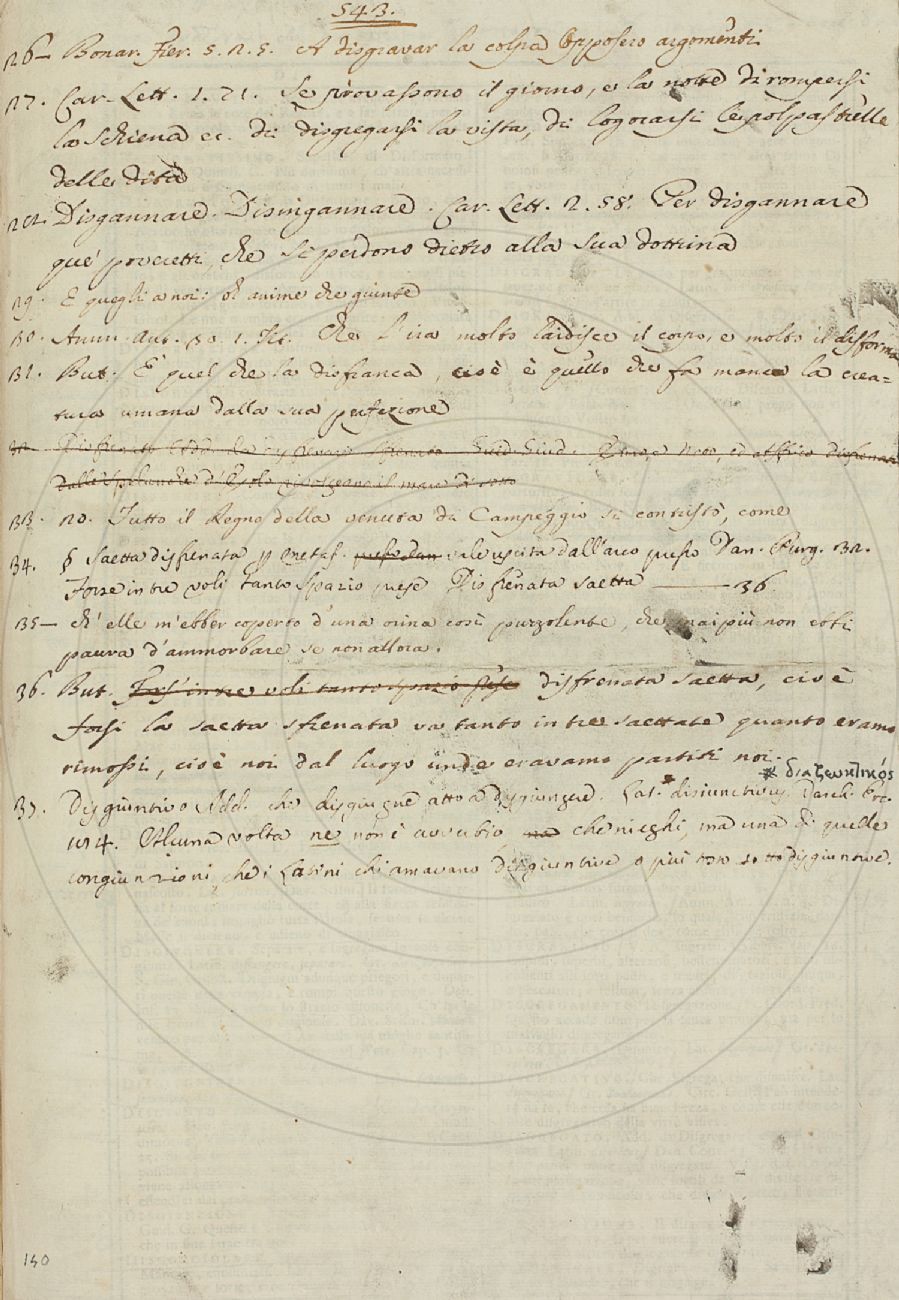 543.
26– Bonar. Fier. 5. 2. 5. A disgravar la colpa opposero argomenti
27. Car. Lett. 1. 71. Se provassono il giorno, e la notte di rompersi
la schiena ec. di disgregarsi la vista, di logorarsi le polpastrelle
delle dita
28. Disgannare. Disingannare. Car. Lett. 2. 58. Per disgannare
que' poveretti, che si perdono dietro alla sua dottrina
29. E quegli a noi: oh anime che giunte
30. Amm. Ant. 30. 1. Che l'ira molto laidisce il corpo, e molto il disforma
31. But. E quel che la disfranca, cioè è quello che fa manca la crea=
tura umana dalla sua perfezione
32. Disfrenato Add. da disfrenare Sfrenato. Guid. Giud.
dalle d'Eolo il mare di sotto
33. 20. Tutto il Regno della venuta di Campeggio si contristò, come
34. § Saetta disfrenata p metaf. vale uscita dall'arco Dan. Purg. 32.
Forse in tre voli tanto spazio prese Disfrenata saetta —— 36
35– ch' elle m'ebber coperto d'una orina così puzzolente, che mai più non ebbi
paura d'ammorbare se non allora.
36. But. Fors' in tre voli tanto spazio prese disfrenata saetta, cioè
forsi la saetta sfrenata va tanto in tre saettate quanto eramo
rimossi, cioè noi dal luogo unde eravamo partiti noi.
* διαζευκτικός
37. Disgiuntivo Add. che disgiugne atto a disgiungere. Lat.* disiunctivus. Varch. Erc.
194. Alcuna volta ne non è avverbio, che nieghi, ma una di quelle
congiunzioni, che i Latini chiamavano disgiuntive o più tosto sottodisgiuntive.
140